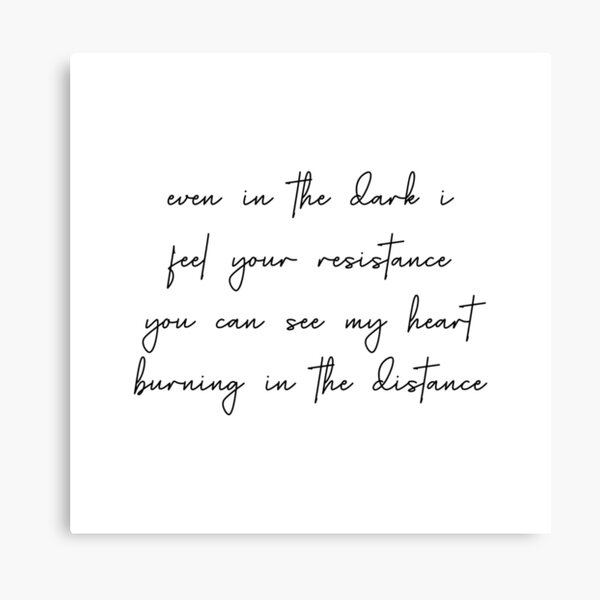 even in the dark i
feel your resistance
you can see my heart
burning in the distance